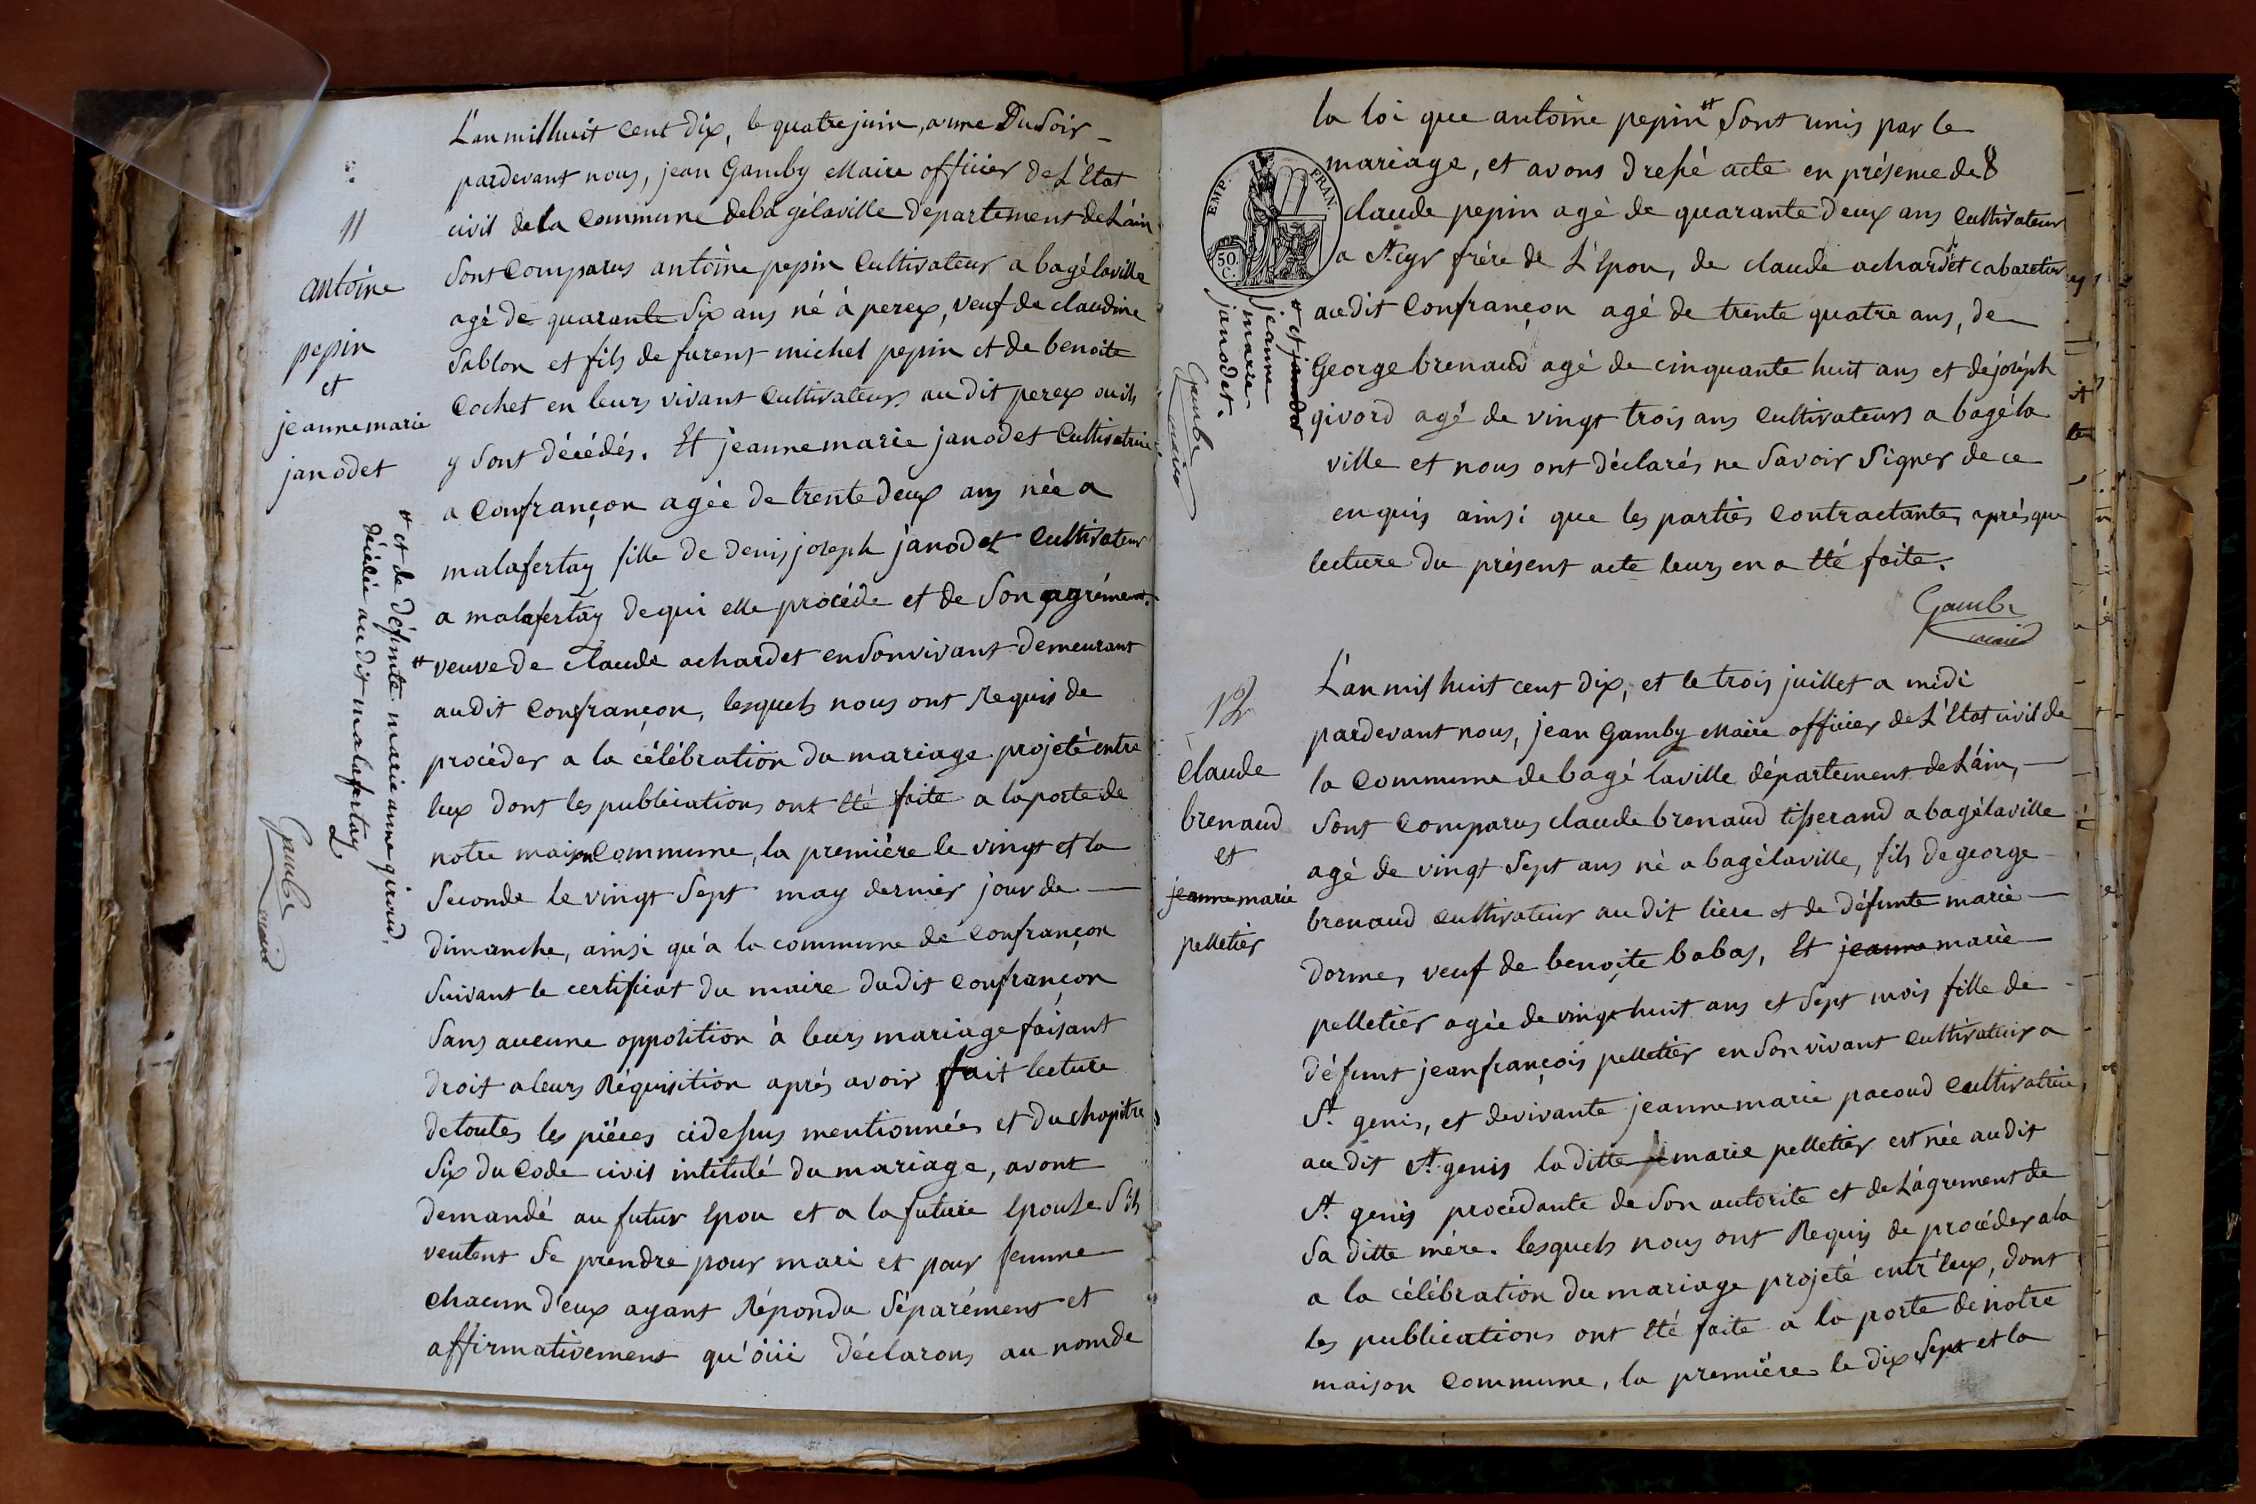 L'an mil huit cent dix, le quatre juin, a une Du soir
pardevant nous, jean Gamby Maire officier de L'Etat
civil de la Commune de bagélaville département de L'ain
Sont Comparus antoine pepin Cultivateur a bagélaville
agé de quarante Six ans né à perex, veuf de claudine
Sablon et fils de furent michel pepin et de benoite
Cochet en leurs vivant Cultivateurs au dit perex ou ils
y Sont décédés. Et jeanne marie janodet Cultivatrice
a Confrançon agée de trente Deux ans née a
malafertay fille de denis joseph janodet Cultivateur
a malafertay de qui elle procéde et de Son agrément.
# veuve de claude achardet en Son vivant demeurant
au dit Confrançon, lesquels nous ont Requis de
procéder a la célébration du mariage projeté entre
Eux dont les publications ont Eté faite a la porte de
notre maison Commune, la première le vingt et la
Seconde le vingt Sept may dernier jour de
dimanche, ainsi qu'a la commune de Confrançon
Suivant le certificat du maire dudit Confrançon
Sans aucune opposition à leurs mariage faisant
droit a leurs Réquisition aprés avoir fait lecture
de toutes les piéces cidessus mentionnées et du chapitre
Six du Code civil intitulé du mariage, avont
demandé au futur Epou et a la future Epouse S'ils
veulent Se prendre pour mari et pour femme
chacun d'eux ayant Répondu Séparément et
affirmativement qu'öüi déclarons au nom de
11
antoine
pepin
et
jeanne marie
janodet
# et de défunte marie anne giraud,
décédée au dit malafertay
Gamby
maire
la loi que antoine pepin # Sont unis par le
mariage, et avons dressé acte en présence de
claude pepin agé de quarante deux ans Cultivateur
a St. cyr frére de L'Epou, de claude achardet cabaretier
au dit Confrançon agé de trente quatre ans, de
George brenaud agé de cinquante huit ans et de joséph
givord agé de vingt trois ans Cultivateurs a bagé la
ville et nous ont déclarés ne Savoir Signer de ce
enquis ainsi que les parties Contractantes aprés que
lecture du présent acte leurs en a Eté faite.
Gamby
maire
EMP. FRAN.
50.
C.
# et jandet
jeanne
marie
janodet.
Gamby
maire
12
Claude
brenaud
et
jeanne marie
pelletier
L'an mil huit cent dix, et le trois juillet a midi
pardevant nous, jean Gamby Maire officier de L'Etat civil de
la Commune de bagé laville département de L'ain,
Sont Comparus claude brenaud tisserand a bagélaville
agé de vingt Sept ans né a bagélaville, fils de george
brenaud cultivateur au dit lieu et de défunte marie
dorme, veuf de benoite babas, Et jeanne marie
pelletier agée de vingt huit ans et Sept mois fille de
défunt jean françois pelletier en Son vivant cultivateur a
St. genis, et de vivante jeanne marie pacoud Cultivatrice
au dit St. genis la ditte marie pelletier est née au dit
St. genis procédante de Son autorite et de L'agrement de
Sa ditte mére. lesquels nous ont Requis de procéder a la
a la célébration du mariage projeté entr'Eux, dont
les publications ont Eté faite a la porte de notre
maison Commune, la premiére le dix Sept et la